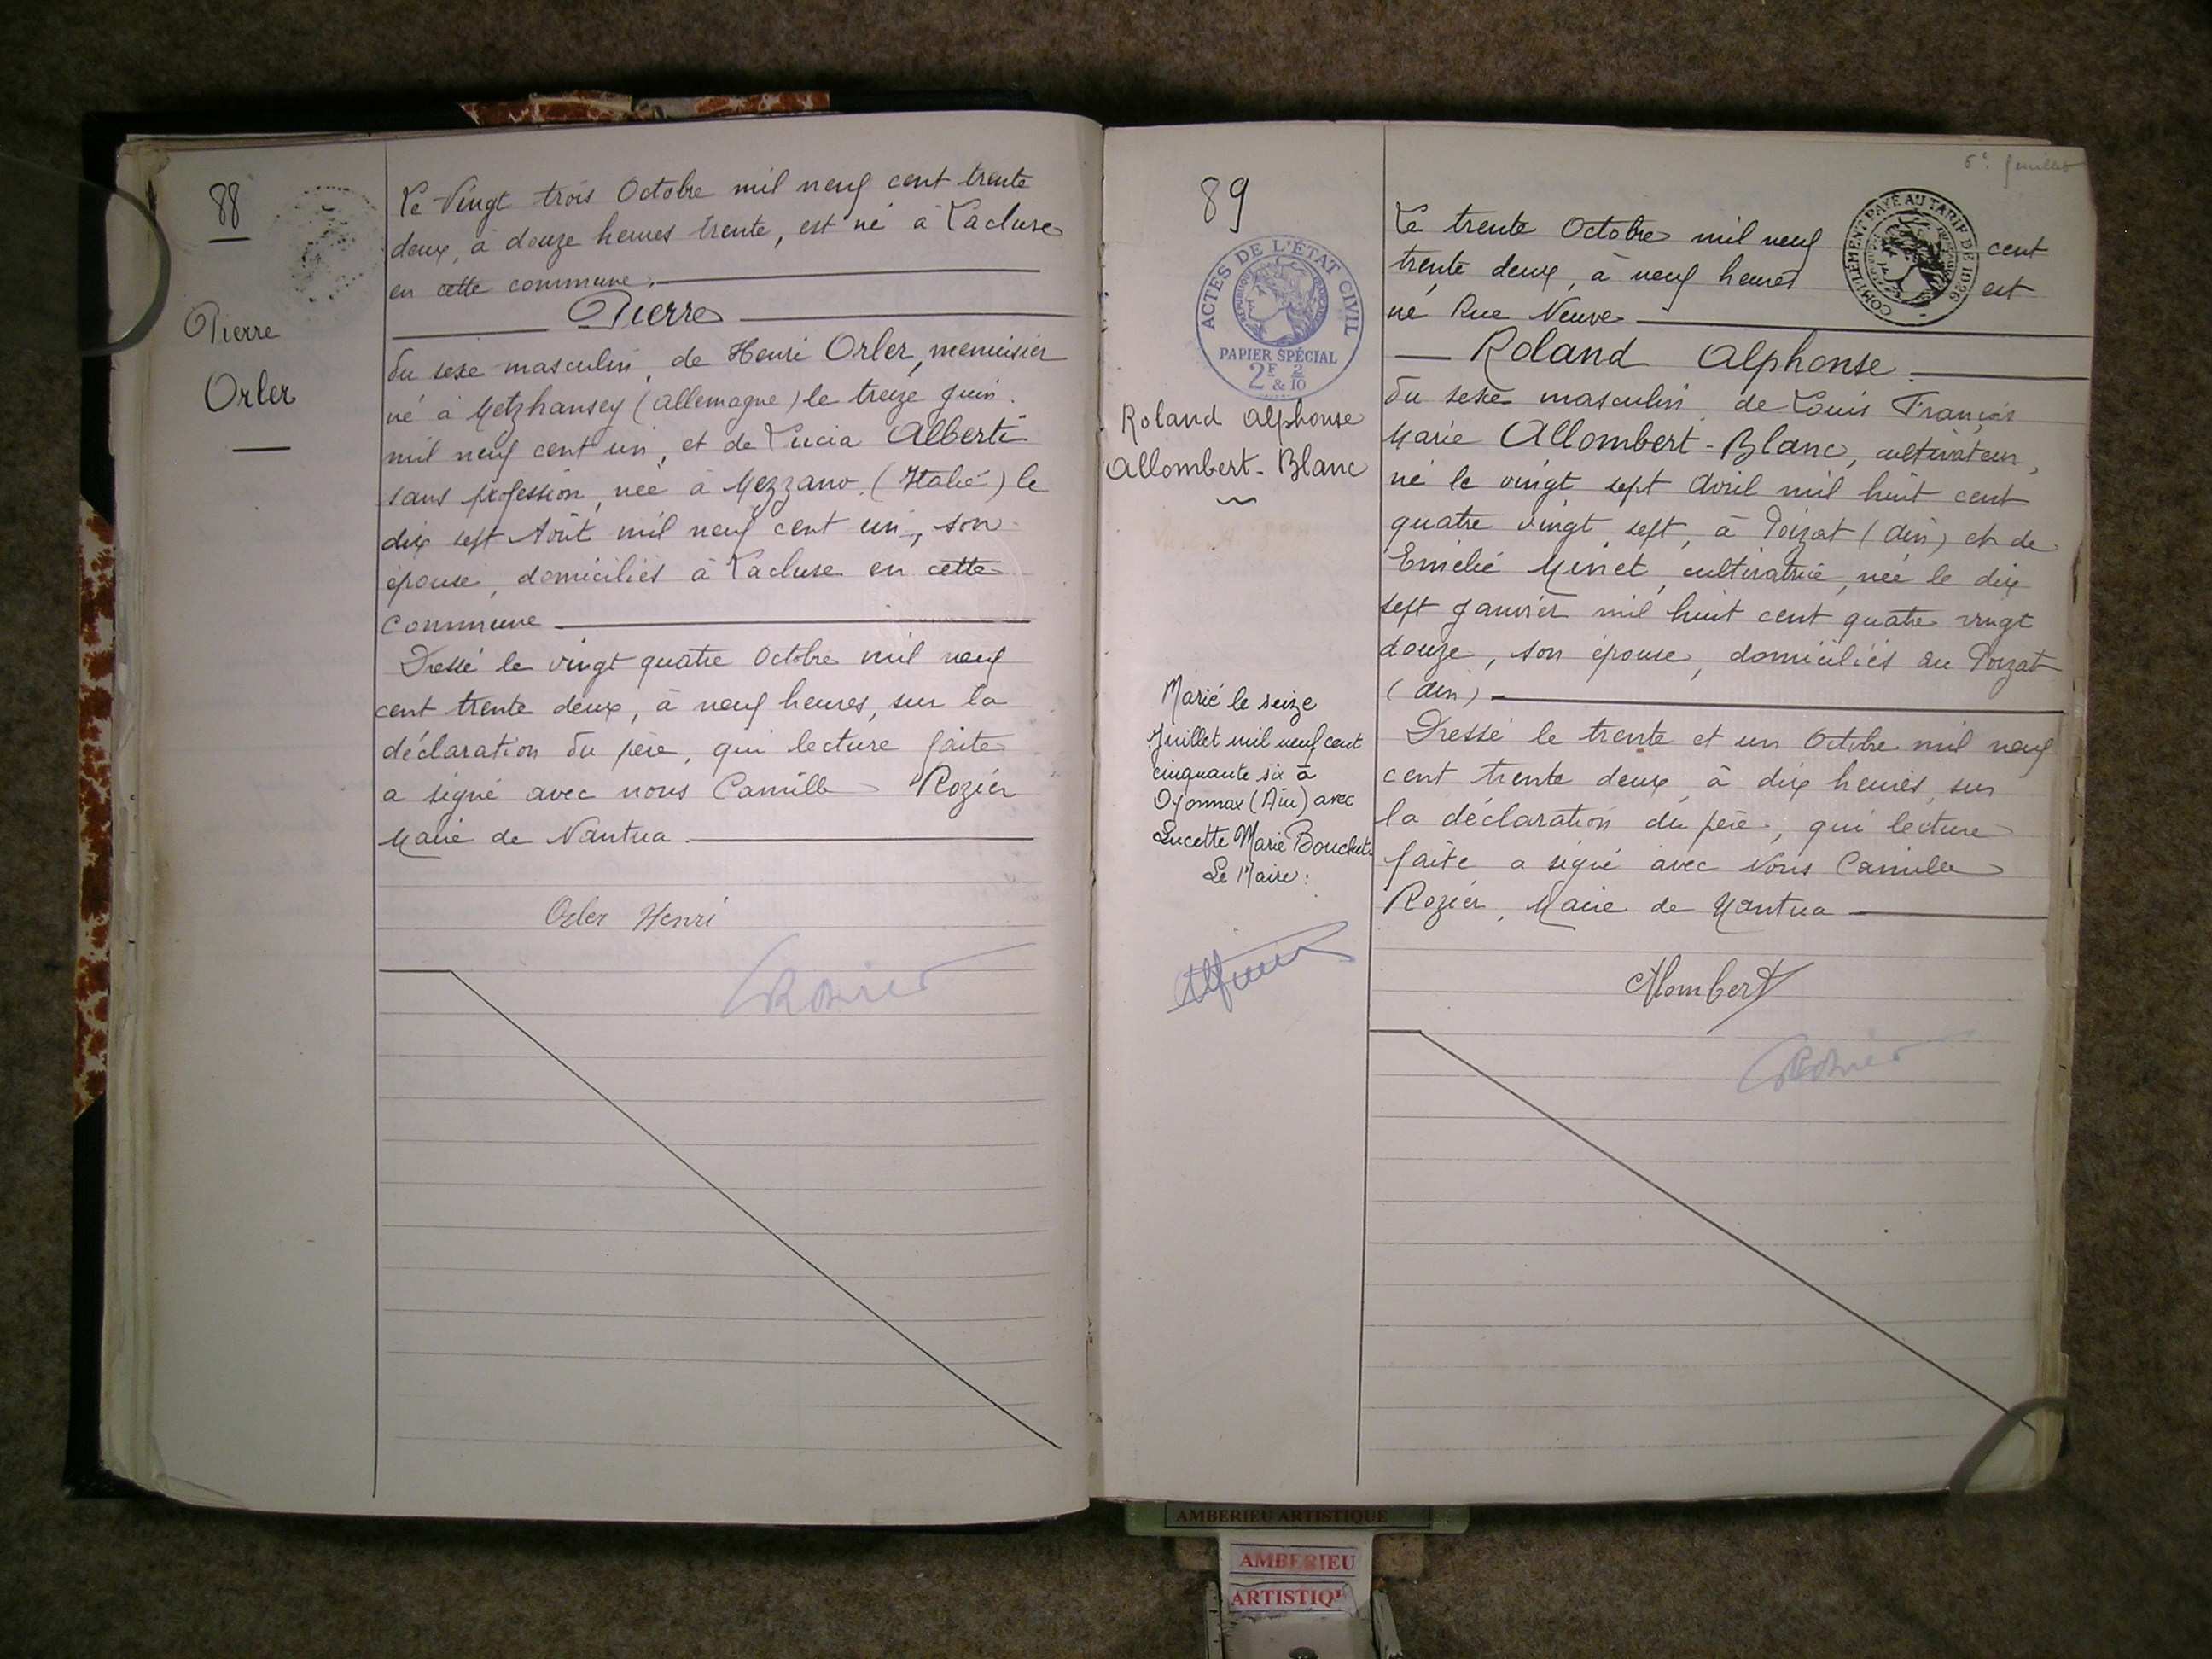 88
Pierre
Orler
Le Vingt trois Octobre mil neuf cent trente
deux, à douze heures trente, est né à Lacluse
en cette commune,
Pierre
du sexe masculin, de Henri Orler, menuisier
né à Metzhausey (Allemagne) le treize Juin
mil neuf cent un, et de Lucia Alberti
sans profession, née à Mezzano (Italie) le
dix sept Août mil neuf cent un, son
épouse, domiciliés à Lacluse en cette
commune
Dressé le vingt quatre Octobre mil neuf
cent trente deux, à neuf heures, sur la
déclaration du père, qui lecture faite
a signé avec nous Camille Rozier
Maire de Nantua.
Orler Henri
CRozier
6e feuillet
89
ACTES DE L'ÉTAT CIVIL
PAPIER SPÉCIAL
2F & 2/10
Roland Alphonse
Allombert-Blanc
Marié le seize
Juillet mil neuf cent
cinquante six à
Oyonnax (Ain) avec
Lucette Marie Bouchet.
Le Maire:
COMPLÉMENT PAYÉ AU TARIF DE 1926
Le trente Octobre mil neuf cent
trente deux, à neuf heures est
né Rue Neuve
Roland Alphonse
du sexe masculin, de Louis François
Marie Allombert-Blanc, cultivateur,
né le vingt sept Avril mil huit cent
quatre vingt sept, à Poizat (Ain) et de
Emélie Minet, cultivatrice, née le dix
sept Janvier mil huit cent quatre vingt
douze, son épouse, domiciliés au Poizat
(Ain)
Dressé le trente et un Octobre mil neuf
cent trente deux à dix heures, sur
la déclaration du père, qui lecture
faite a signé avec Nous Camille
Rozier, Maire de Nantua
Allombert
CRozier
AMBERIEU ARTISTIQUE
AMBERIEU
ARTISTIQU